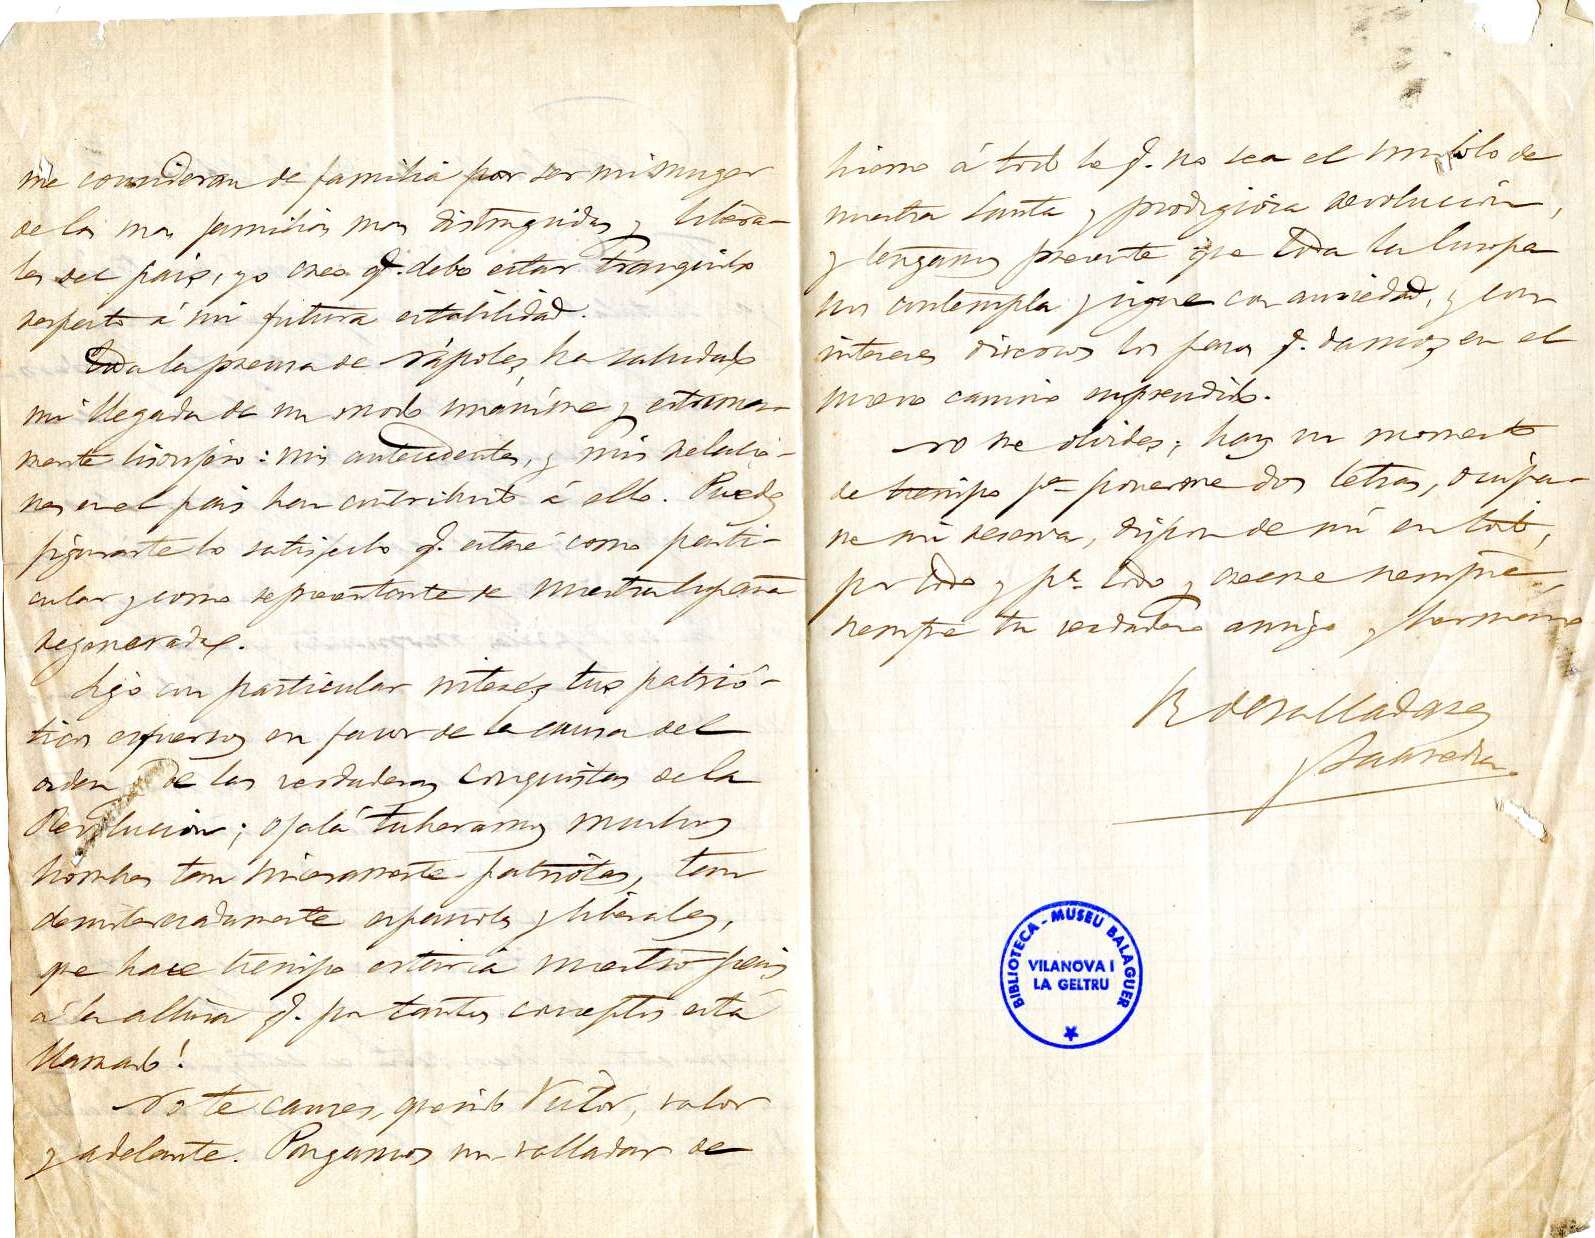 me consideran de familia por ser mi muger
de las mas familias mas distinguidas y libera-
les del pais, yo creo q. debo estar tranquilo
respecto á mi futura estabilidad.
Toda la prensa de Nápoles, ha saludado
mi llegada de un modo unánime y estrema-
mente lisonjero: mis antecedentes, y mis relacio-
nes en el pais han contribuido á ello. Puedes
figurarte lo satisfecho q. estaré como parti-
cular y como representante de nuestra España
regenerada.
Sigo con particular interés tus patrió-
ticos esfuerzos en favor de la causa del
orden de las verdaderas conquistas de la
Revolucion; ojalá tubieramos muchos
hombres tan sinceramente patriotas, tan
desinteresadamente españoles y liberales,
que hace tiempo estaria nuestro pais
á la altura q. por tantos conceptos está
llamado!
No te canses, querido Victor, valor
y adelante. Pongamos un valladar de
hierro á todo lo q. no sea el simbolo de
nuestra santa y prodigiosa revolucion,
y tengamos presente que toda la Europa
nos contempla y sigue con ansiedad, y con
intereses diversos los pasos q. damos en el
nuevo camino emprendido.
No me olvides; haz un momento
de tiempo pª ponerme dos letras,
mi reserva, dispon de mí en todo,
por todo y pª todo y creeme siempre,
siempre tu verdadero amigo y hermano
R de Valladares
y Saavedra.
BIBLIOTECA - MUSEU BALAGUER
VILANOVA I
LA GELTRU